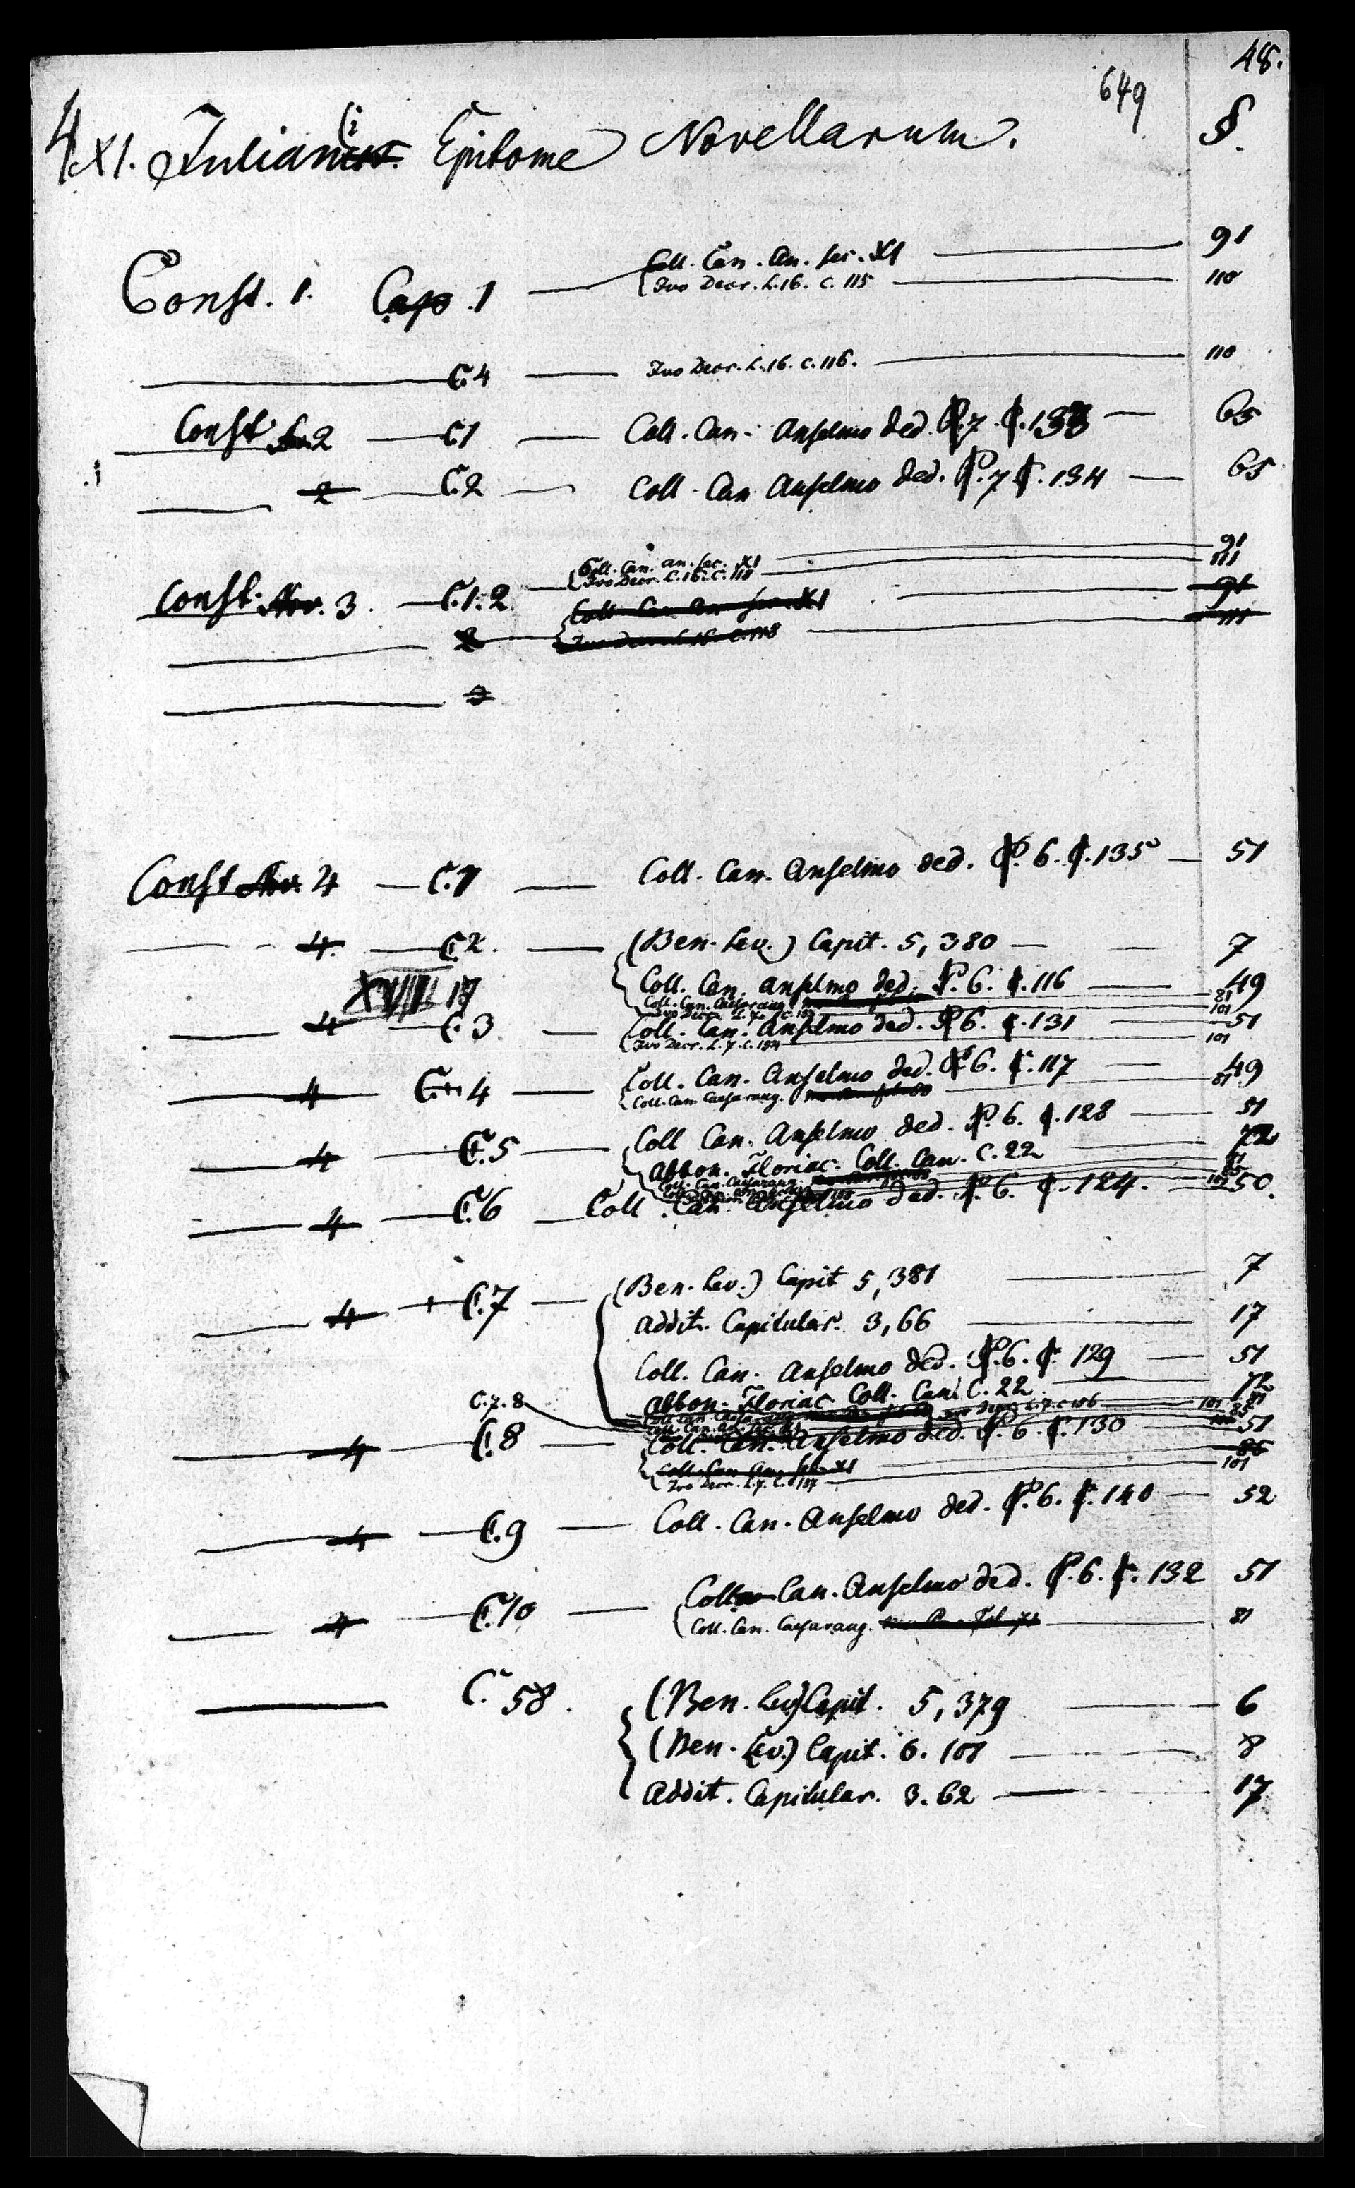 48.
649
XI. Juliani Epitome Novellarum. §.
Const. 1. Cap. 1 Coll. Can. An. sec. XI 91
Ivo Decr. L.16. C. 115 110
C. 4 Ivo Decr. L.16. C. 116. 110
Const. 2 C. 1 Coll. Can. Anselmo ded. P. 7 C. 133 65
2 C. 2 Coll. Can Anselmo ded. P. 7 C. 134 65
Coll. Can. An. sec. XI 91
Const. Nov. 3. C. 1. 2 Ivo Decr. L. 16. C. 118 111
Coll Can An sec XI 91
2 Ivo Decr. L. 16. C. 118 111
3
Const Nov. 4 C. 1 Coll. Can. Anselmo ded. P. 6. C. 135 51
4. C. 2. (Ben. Lev.) Capit. 5, 380 7
Coll. Can. Anselmo ded. P. 6. C. 116 49
XVIII 17 Coll. Can. Caesaraug. 81
Ivo Decr. L. 7. C. 101
4 C. 3 Coll. Can. Anselmo ded. P. 6. C. 131 51
Ivo Decr. L. 7. C. 101
4 C. 4 Coll. Can. Anselmo ded. P. 6. C. 117 49
Coll. Can. Caesaraug. 81
4 C. 5 Coll Can. Anselmo ded. P. 6. C. 128 51
Abbon. Floriac. Coll. Can. C. 22 72
4 C. 6 Coll. Can. Anselmo ded. P. 6. C. 124. 50.
4 C. 7 (Ben. Lev.) Capit 5, 381 7
Addit. Capitular. 3, 66 17
Coll. Can. Anselmo ded. P. 6. C. 129 51
C. 7. 8 Abbon. Floriac Coll. Can. C. 22 72
4 C. 8 Coll. Can. Anselmo ded. P. 6. C. 130 51
Coll. Can An. sec. XI 86
Ivo Decr. L. 7. C. 137 101
4 C. 9 Coll. Can. Anselmo ded. P. 6. C. 140 52
4 C. 10 Coll. Can. Anselmo ded. P. 6. C. 132 51
Coll. Can. Caesaraug. 81
C. 58. (Ben. Lev) Capit. 5, 379 6
(Ben. Lev.) Capit. 6. 101 8
Addit. Capitular. 3. 62 17